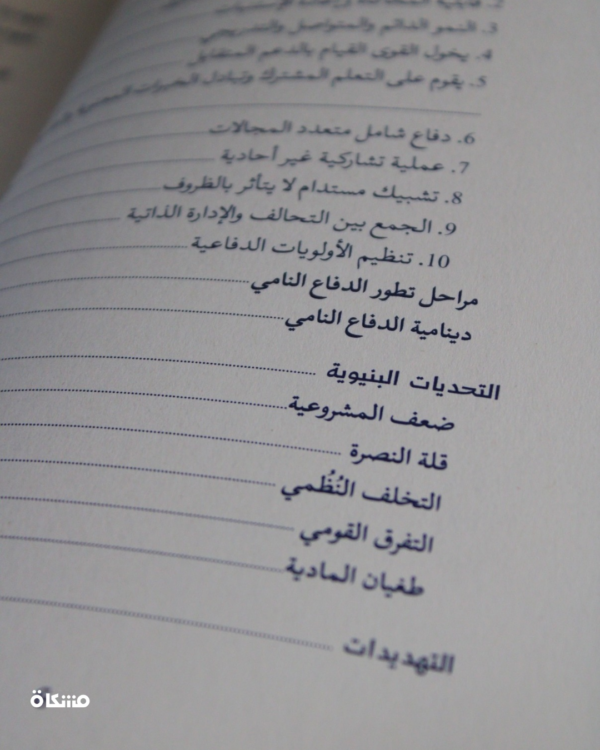 3. النمو الدائم والمتواصل والتدريجي
4. يخول القوى القيام بالدعم المتقابل
5. يقوم على التعلم المشترك وتبادل الخبرات
6. دفاع شامل متعدد المجالات
7. عملية تشاركية غير أحادية
8. تشبيك مستدام لا يتأثر بالظروف
9. الجمع بين التحالف والإدارة الذاتية
10. تنظيم الأولويات الدفاعية
مراحل تطور الدفاع النامي
دينامية الدفاع النامي
التحديات البنيوية
ضعف المشروعية
قلة النصرة
التخلف النُّظُمي
التفرق القومي
طغيان المادية
التهديدات
مشكاة